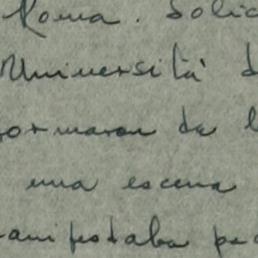 Roma. Solic
Università d
formaron de l
una escena
manifestaba pa